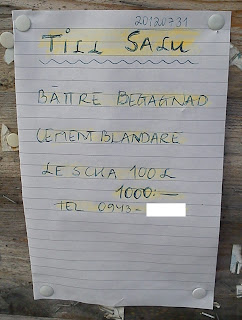 20120731
TILL SALU
BÄTTRE BEGAGNAD
CEMENTBLANDARE
LESCHA 100L
1000:-
TEL 0943-